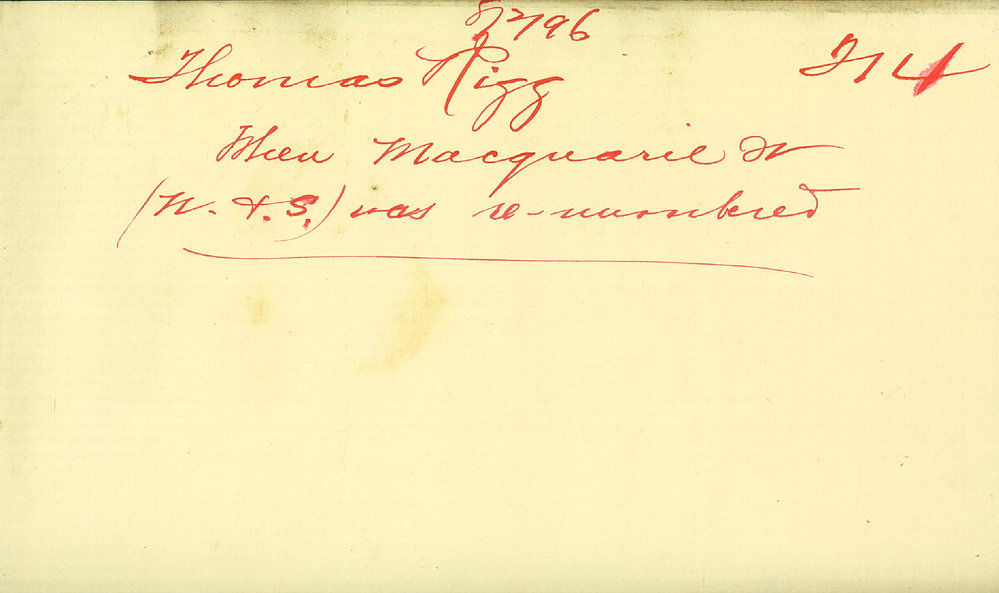 8/2796
Thomas Rigg
When Macquarie St
(N. & S.) was re-numbered